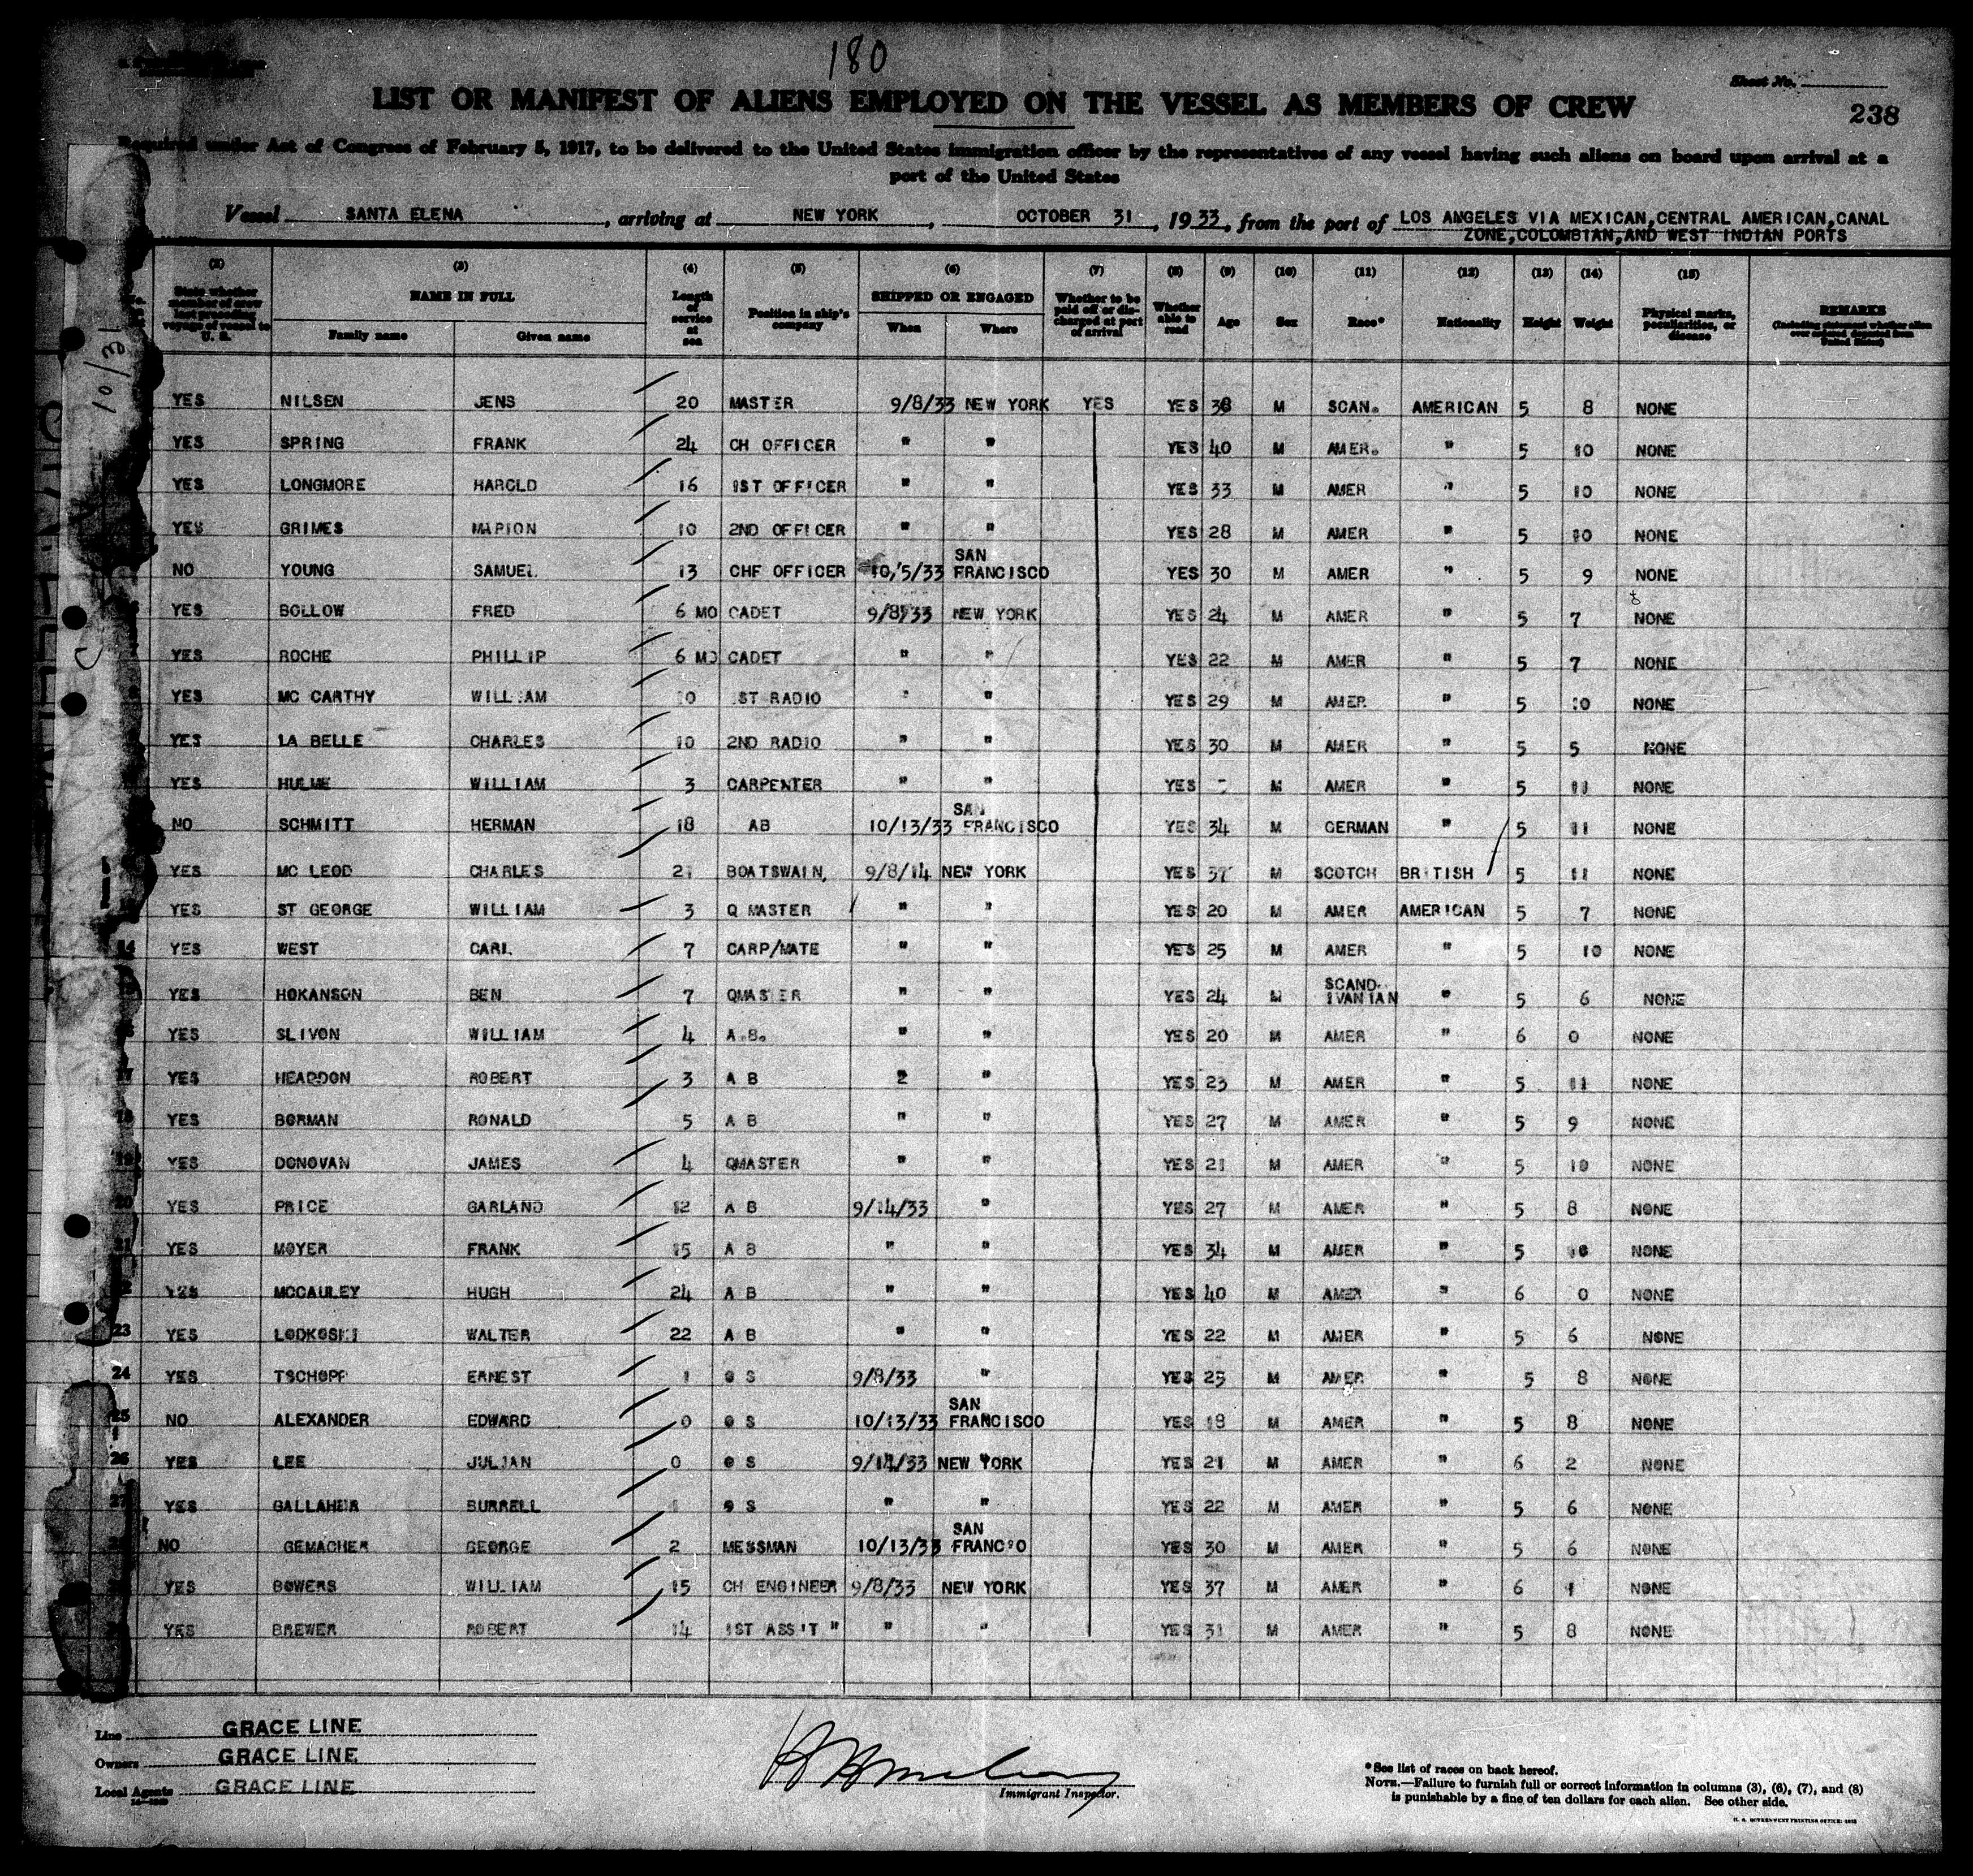 180
Sheet No.
LIST OR MANIFEST OF ALIENS EMPLOYED ON THE VESSEL AS MEMBERS OF CREW
238
Required under Act of Congress of February 5, 1917, to be delivered to the United States immigration officer by the representatives of any vessel having such aliens on board upon arrival at a
port of the United States
Vessel SANTA ELENA, arriving at NEW YORK, OCTOBER 31, 1933, from the port of LOS ANGELES VIA MEXICAN,CENTRAL AMERICAN,CANAL
ZONE,COLOMBIAN,AND WEST INDIAN PORTS
(2) (3) (4) (5) (6) (7) (8) (9) (10) (11) (12) (13) (14) (15)
State whether member of crew last preceding voyage of vessel to U. S. NAME IN FULL Family name Given name Length of service at sea Position in ship's company SHIPPED OR ENGAGED When Where Whether to be paid off or discharged at port of arrival Whether able to read Age Sex Race* Nationality Height Weight Physical marks, peculiarities, or disease REMARKS (Including statement whether alien ever ordered deported from United States)
YES NILSEN JENS 20 MASTER 9/8/33 NEW YORK YES YES 38 M SCAN. AMERICAN 5 8 NONE
YES SPRING FRANK 24 CH OFFICER " " YES 40 M AMER. " 5 10 NONE
YES LONGMORE HAROLD 16 1ST OFFICER " " YES 33 M AMER " 5 10 NONE
YES GRIMES MARION 10 2ND OFFICER " " YES 28 M AMER " 5 10 NONE
NO YOUNG SAMUEL 13 CHF OFFICER 10/5/33 SAN FRANCISCO YES 30 M AMER " 5 9 NONE
YES BOLLOW FRED 6 MO CADET 9/8/33 NEW YORK YES 24 M AMER " 5 7 NONE
YES ROCHE PHILLIP 6 MO CADET " " YES 22 M AMER " 5 7 NONE
YES MC CARTHY WILLIAM 10 1ST RADIO " " YES 29 M AMER " 5 10 NONE
YES LA BELLE CHARLES 10 2ND RADIO " " YES 30 M AMER " 5 5 NONE
YES HULME WILLIAM 3 CARPENTER " " YES M AMER " 5 11 NONE
NO SCHMITT HERMAN 18 AB 10/13/33 SAN FRANCISCO YES 34 M GERMAN " 5 11 NONE
YES MC LEOD CHARLES 21 BOATSWAIN, 9/8/14 NEW YORK YES 37 M SCOTCH BRITISH 5 11 NONE
YES ST GEORGE WILLIAM 3 Q MASTER " " YES 20 M AMER AMERICAN 5 7 NONE
14 YES WEST CARL 7 CARP/MATE " " YES 25 M AMER " 5 10 NONE
YES HOKANSON BEN 7 QMASTER " " YES 24 M SCAND- IVANIAN " 5 6 NONE
YES SLIVON WILLIAM 4 A.B. " " YES 20 M AMER " 6 0 NONE
17 YES HEADDON ROBERT 3 A B 2 " YES 23 M AMER " 5 11 NONE
18 YES BORMAN RONALD 5 A B " " YES 27 M AMER " 5 9 NONE
19 YES DONOVAN JAMES 4 QMASTER " " YES 21 M AMER " 5 10 NONE
20 YES PRICE GARLAND 12 A B 9/14/33 " YES 27 M AMER " 5 8 NONE
21 YES MOYER FRANK 15 A B " " YES 34 M AMER " 5 10 NONE
YES MCCAULEY HUGH 24 A B " " YES 40 M AMER " 6 0 NONE
23 YES LODKOSKI WALTER 22 A B " " YES 22 M AMER " 5 6 NONE
24 YES TSCHOPP ERNEST 1 O S 9/8/33 " YES 25 M AMER " 5 8 NONE
25 NO ALEXANDER EDWARD 0 O S 10/13/33 SAN FRANCISCO YES 18 M AMER " 5 8 NONE
26 YES LEE JULIAN 0 O S 9/14/33 NEW YORK YES 21 M AMER " 6 2 NONE
27 YES GALLAHER BURRELL 1 O S " " YES 22 M AMER " 5 6 NONE
NO GEMACHER GEORGE 2 MESSMAN 10/13/33 SAN FRANC'O YES 30 M AMER " 5 6 NONE
YES BOWERS WILLIAM 15 CH ENGINEER 9/8/33 NEW YORK YES 37 M AMER " 6 1 NONE
YES BREWER ROBERT 14 1ST ASS'T " " " YES 31 M AMER " 5 8 NONE
Line GRACE LINE
Owners GRACE LINE
Local Agents GRACE LINE
Immigrant Inspector.
*See list of races on back hereof.
NOTE.—Failure to furnish full or correct information in columns (3), (6), (7), and (8)
is punishable by a fine of ten dollars for each alien. See other side.
U. S. GOVERNMENT PRINTING OFFICE
10/31